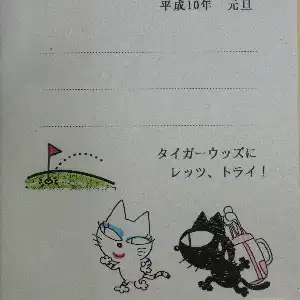 平成10年　元旦
タイガーウッズに
レッツ、トライ！